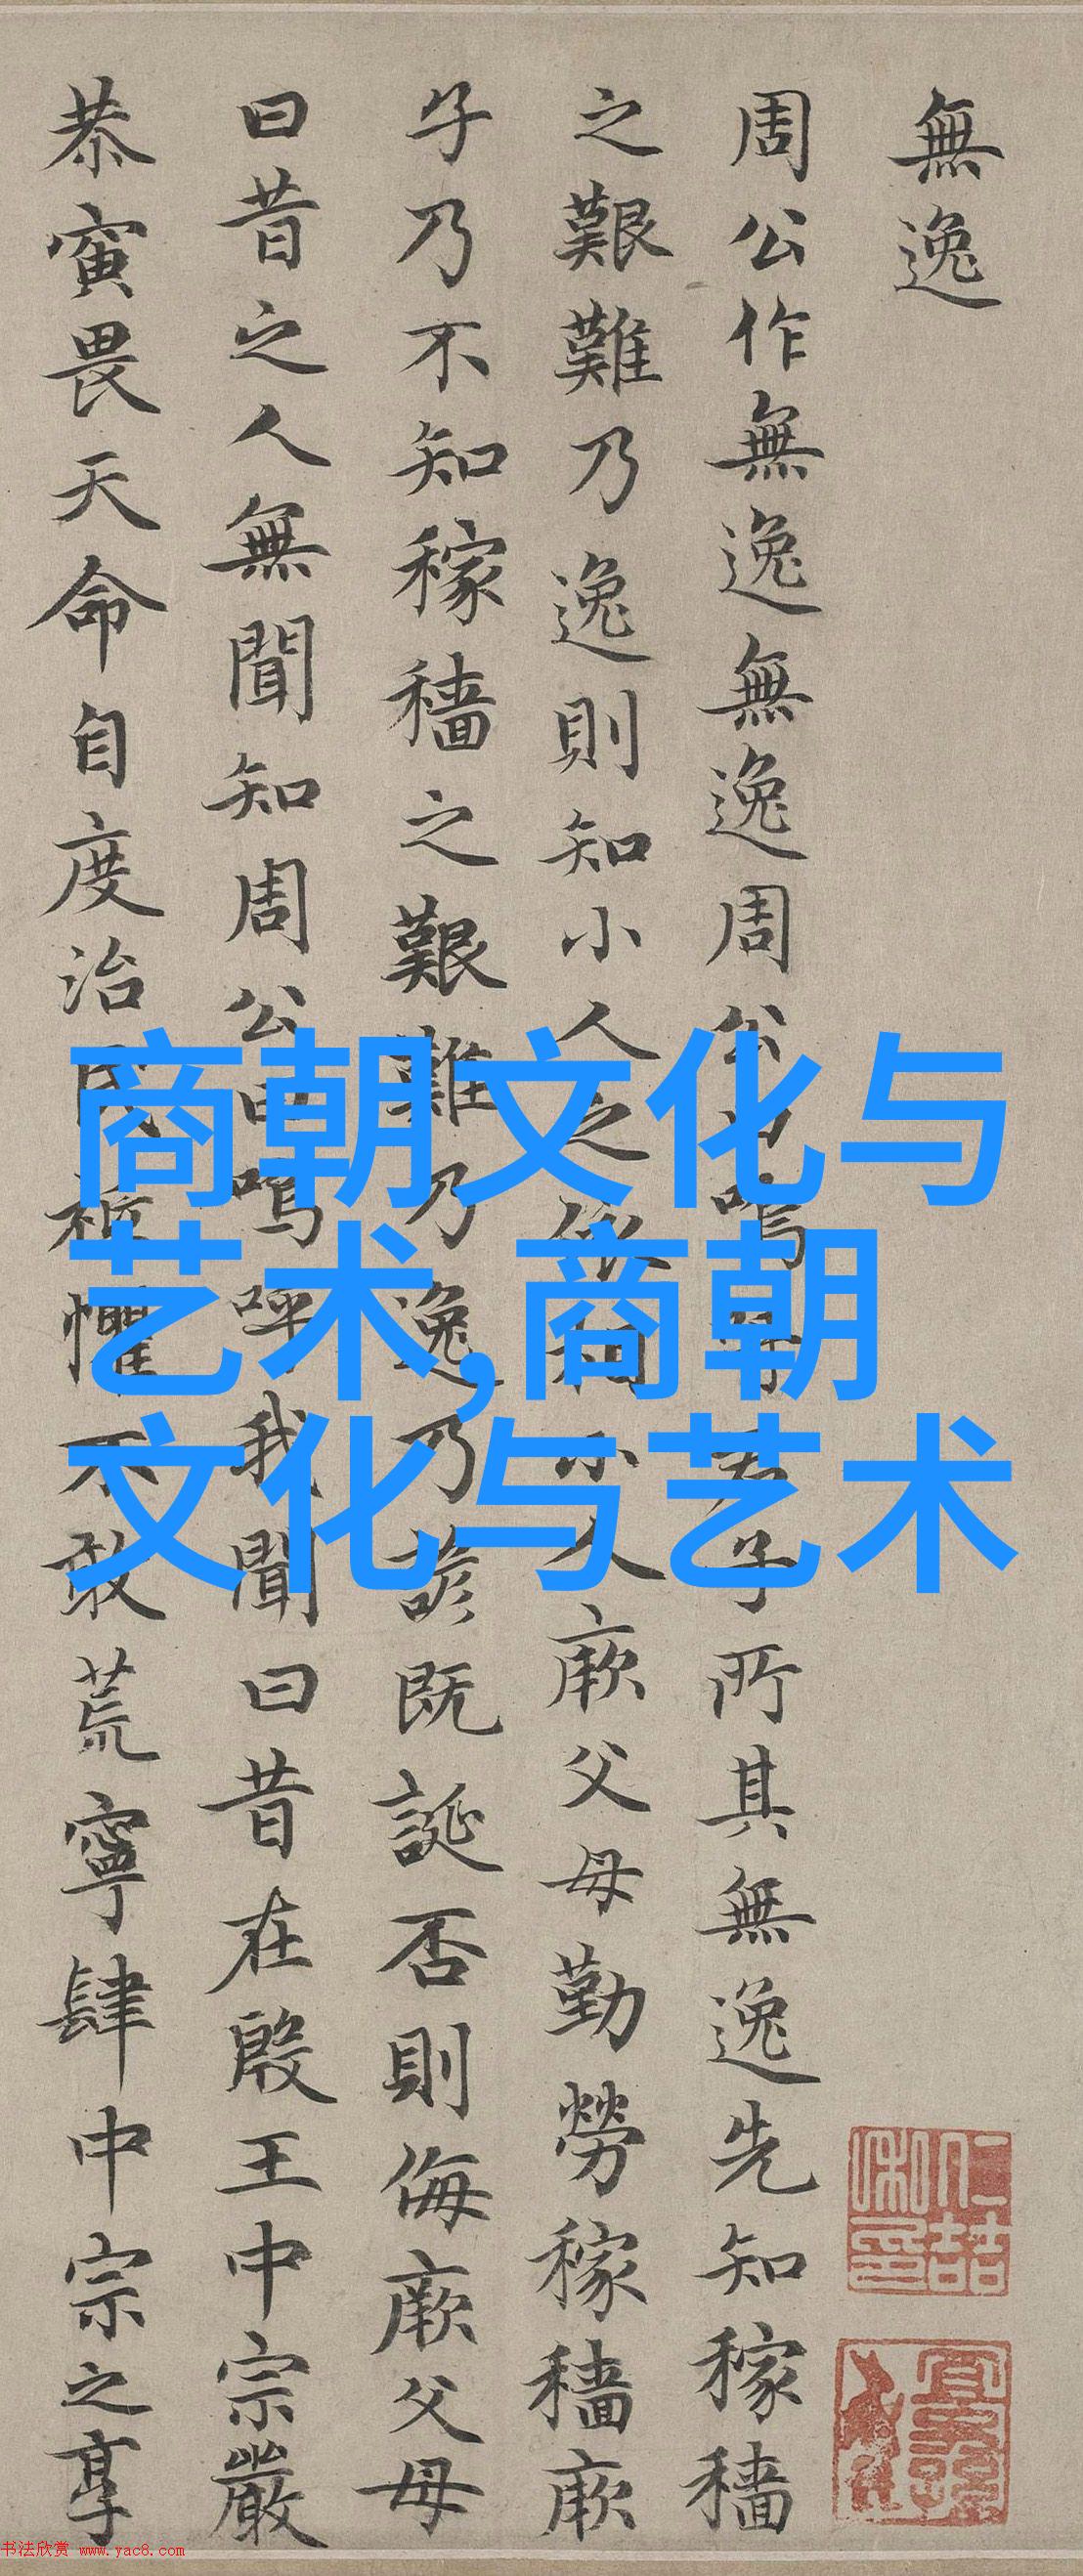 無逸
周公作無逸無逸周公曰嗚呼君子所其無逸先知稼穡
之艱難乃逸則知小人之依相小人厥父母勤勞稼穡厥
子乃不知稼穡之艱難乃逸乃諺既誕否則侮厥父母
曰昔之人無聞知周公曰嗚呼我聞曰昔在殷王中宗嚴
恭寅畏天命自度治民祗懼不敢荒寧肆中宗之享
商朝文化与
艺术,商朝
文化与艺术
书法欣赏 www.yac8.com